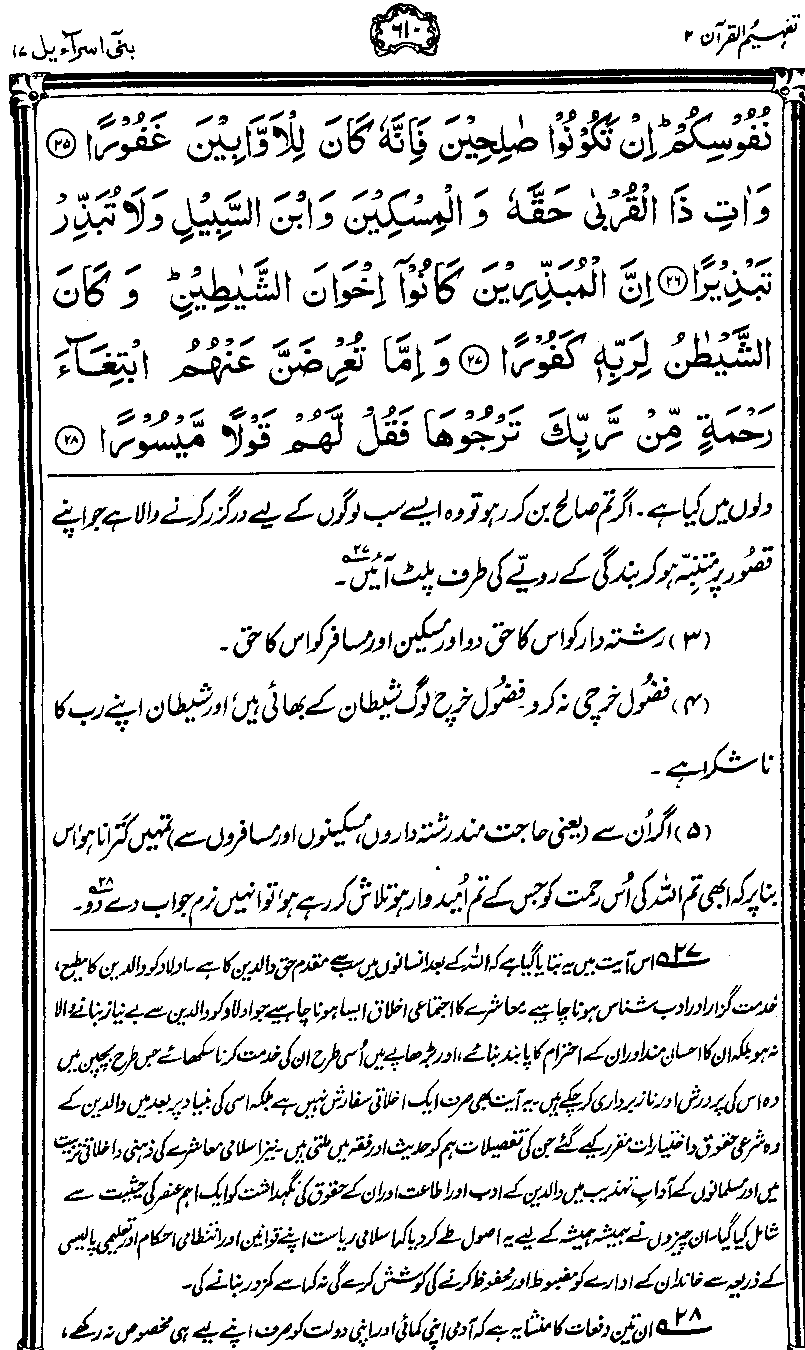 تفہیم القرآن ۲
۶۱۰
بنی اسرآءیل ۱۷
نُفُوْسِكُمْ ؕ اِنْ تَكُوْنُوْا صٰلِحِيْنَ فَاِنَّهٗ كَانَ لِلْاَوَّابِيْنَ غَفُوْرًا ﴿۲۵﴾
وَاٰتِ ذَا الْقُرْبٰى حَقَّهٗ وَ الْمِسْكِيْنَ وَابْنَ السَّبِيْلِ وَلَا تُبَذِّرْ
تَبْذِيْرًا ﴿۲۶﴾ اِنَّ الْمُبَذِّرِيْنَ كَانُوْۤا اِخْوَانَ الشَّيٰطِيْنِ ؕ وَ كَانَ
الشَّيْطٰنُ لِرَبِّهٖ كَفُوْرًا ﴿۲۷﴾ وَ اِمَّا تُعْرِضَنَّ عَنْهُمُ ابْتِغَآءَ
رَحْمَةٍ مِّنْ رَّبِّكَ تَرْجُوْهَا فَقُلْ لَّهُمْ قَوْلًا مَّيْسُوْرًا ﴿۲۸﴾
دلوں میں کیا ہے۔ اگر تم صالح بن کر رہو تو وہ ایسے سب لوگوں کے لیے درگزر کرنے والا ہے جو اپنے
قصُور پر متنبّہ ہو کر بندگی کے رویّے کی طرف پلٹ آئیں۲۷؎۔
(۳) رشتہ دار کو اس کا حق دو اور مسکین اور مسافر کو اس کا حق۔
(۴) فضُول خرچی نہ کرو۔ فضُول خرچ لوگ شیطان کے بھائی ہیں، اور شیطان اپنے رب کا
ناشکرا ہے۔
(۵) اگر اُن سے (یعنی حاجت مند رشتہ داروں، مسکینوں اور مسافروں سے) تمہیں کترانا ہو، اس
بنا پر کہ ابھی تم اللہ کی اُس رحمت کو جس کے تم اُمیدوار ہو تلاش کر رہے ہو، تو انہیں نرم جواب دے دو۲۸؎۔
۲۷؎ اس آیت میں یہ بتایا گیا ہے کہ اللہ کے بعد انسانوں میں سب سے مقدم حق والدین کا ہے۔ اولاد کو والدین کا مطیع،
خدمت گزار اور ادب شناس ہونا چاہیے۔ معاشرے کا اجتماعی اخلاق ایسا ہونا چاہیے جو اولاد کو والدین سے بے نیاز بنانے والا
نہ ہو بلکہ ان کا احسان مند اور ان کے احترام کا پابند بنائے، اور بڑھاپے میں اُسی طرح ان کی خدمت کرنا سکھائے جس طرح بچپن میں
وہ اس کی پرورش اور ناز برداری کر چکے ہیں۔ یہ آیت بھی صرف ایک اخلاقی سفارش نہیں ہے بلکہ اسی کی بنیاد پر بعد میں والدین کے
وہ شرعی حقوق و اختیارات مقرر کیے گئے جن کی تفصیلات ہم کو حدیث اور فقہ میں ملتی ہیں۔ نیز اسلامی معاشرے کی ذہنی و اخلاقی تربیت
میں اور مسلمانوں کے آدابِ تہذیب میں والدین کے ادب اور اطاعت اور ان کے حقوق کی نگہداشت کو ایک اہم عنصر کی حیثیت سے
شامل کیا گیا۔ ان چیزوں نے ہمیشہ ہمیشہ کے لیے یہ اصول طے کر دیا کہ اسلامی ریاست اپنے قوانین اور انتظامی احکام اور تعلیمی پالیسی
کے ذریعہ سے خاندان کے ادارے کو مضبوط اور محفوظ کرنے کی کوشش کرے گی نہ کہ اسے کمزور بنانے کی۔
۲۸؎ ان تین دفعات کا منشا یہ ہے کہ آدمی اپنی کمائی اور اپنی دولت کو صرف اپنے لیے ہی مخصوص نہ رکھے،